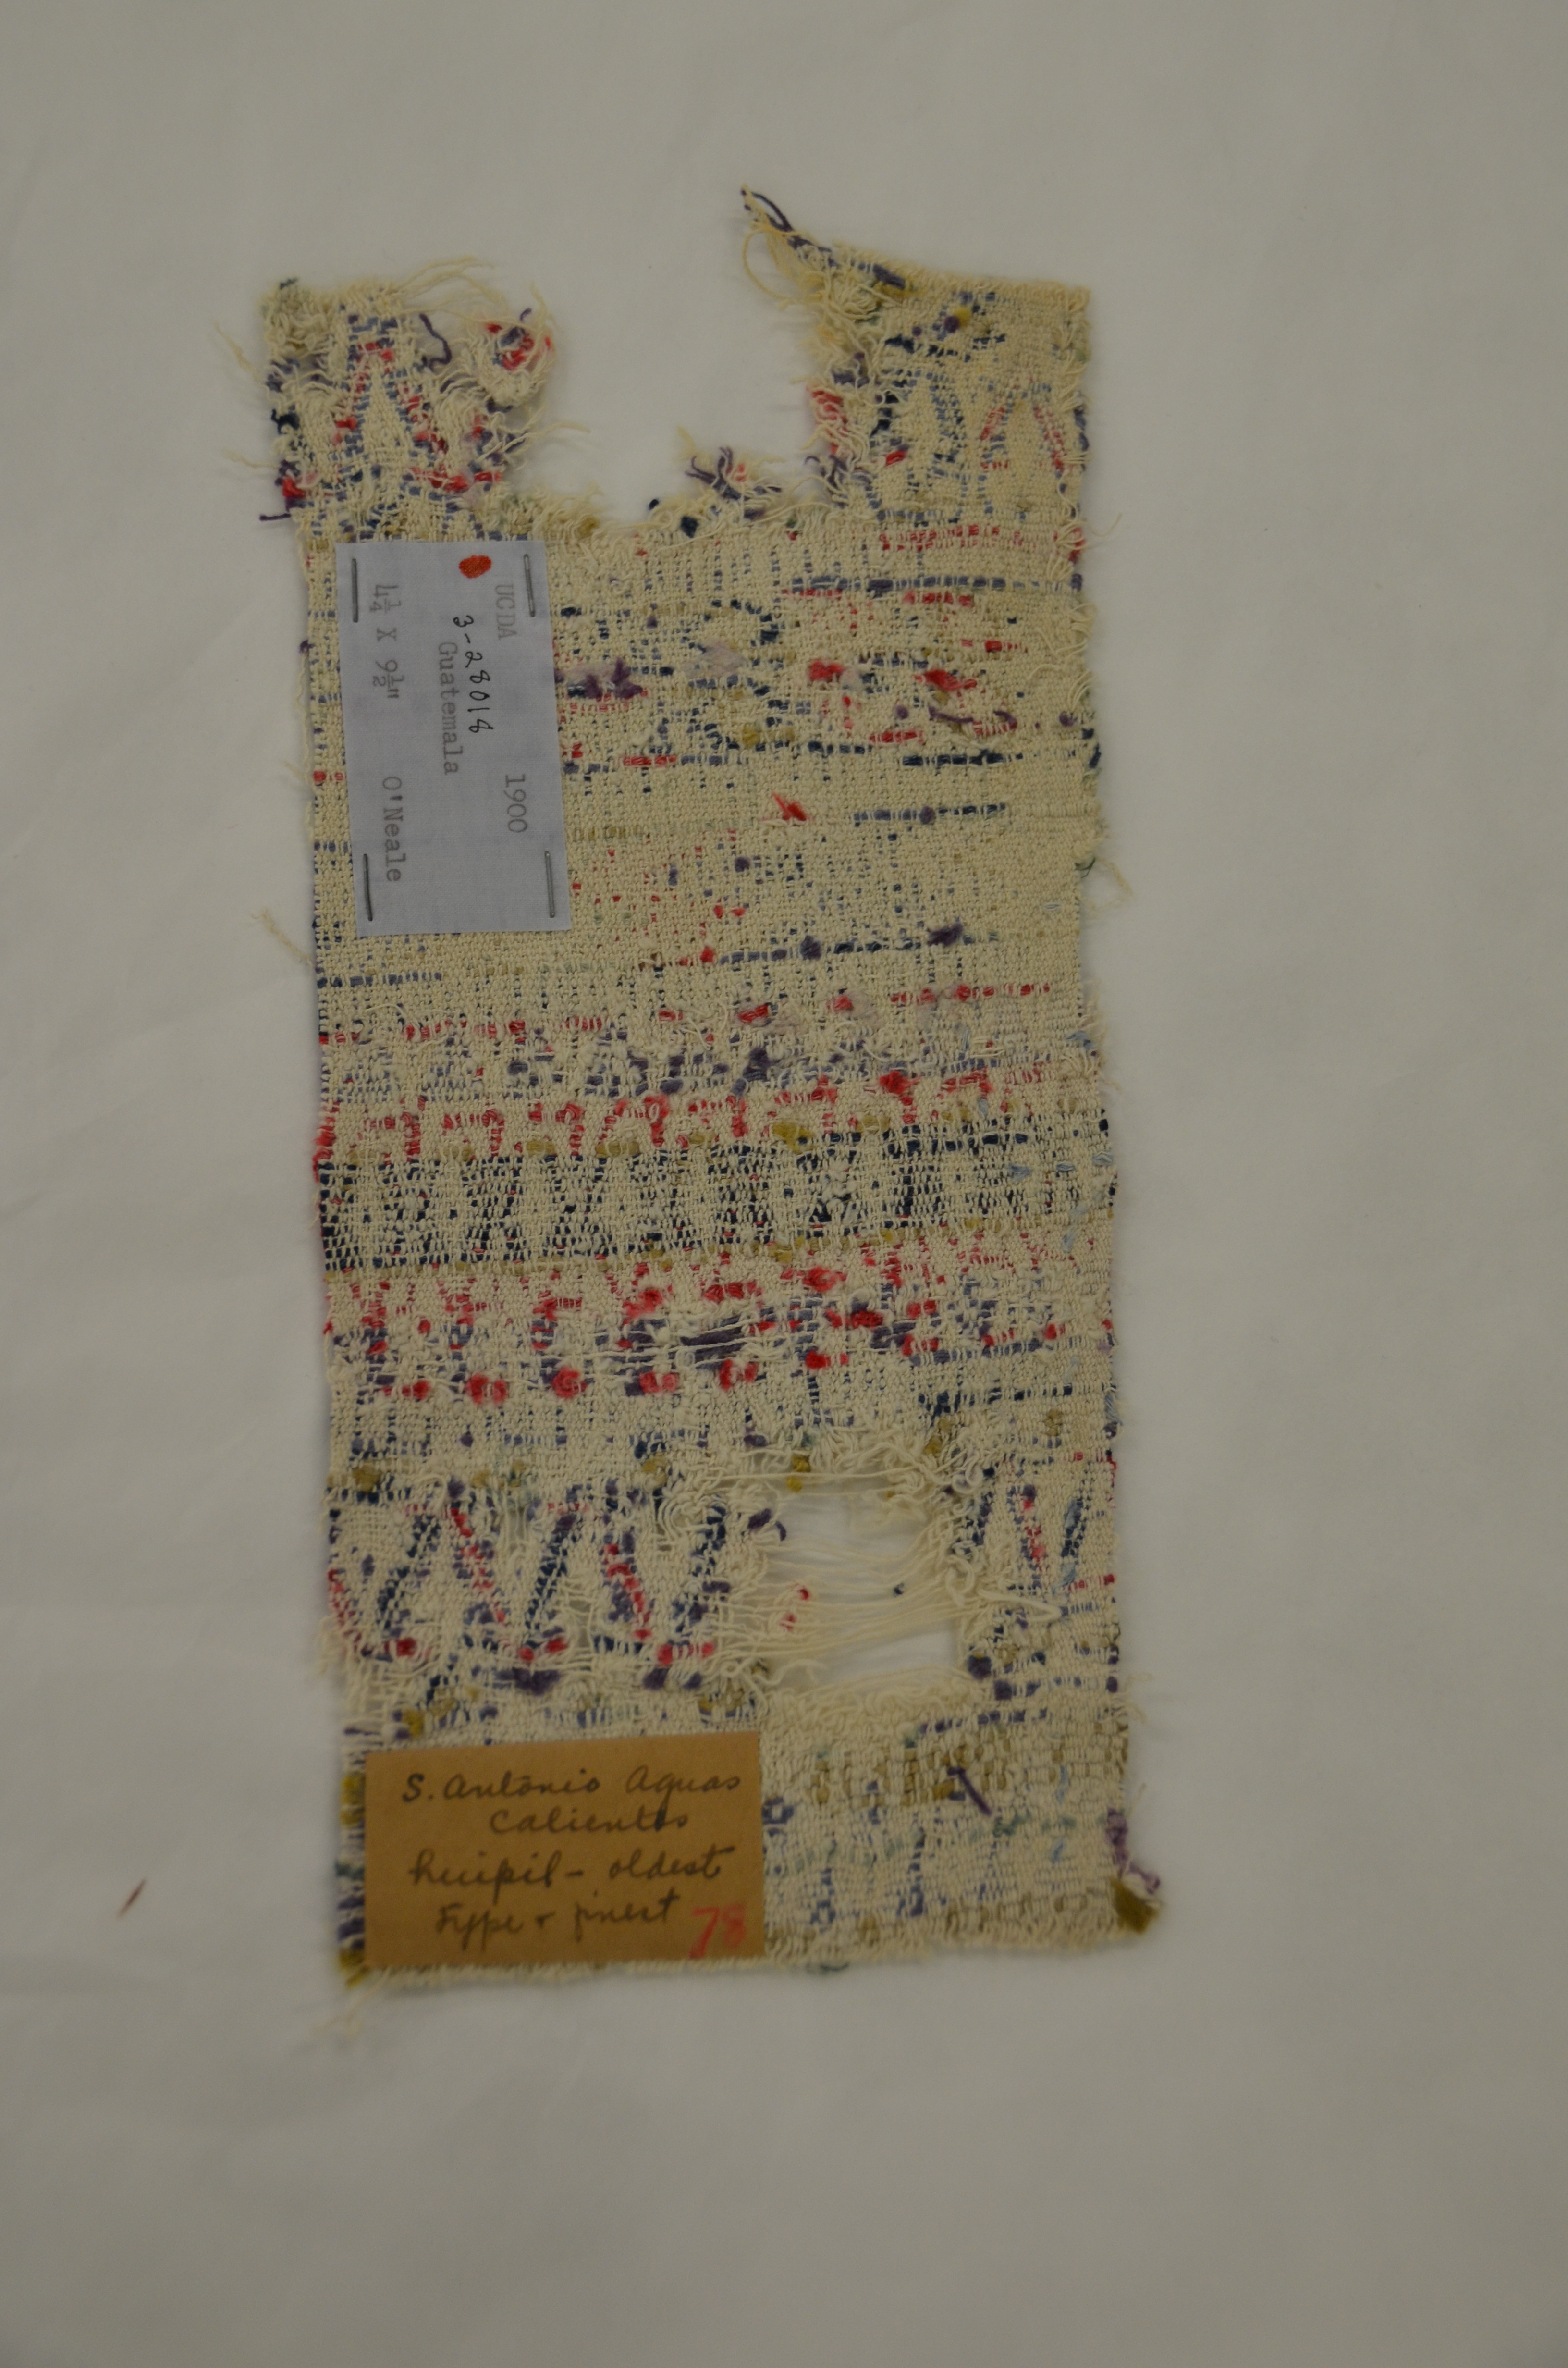 UCDA 1900
3-28018
Guatemala
4¼ X 9½" O'Neale
S. Antonio Aguas
Calientes
huipil - oldest
type & finest
78